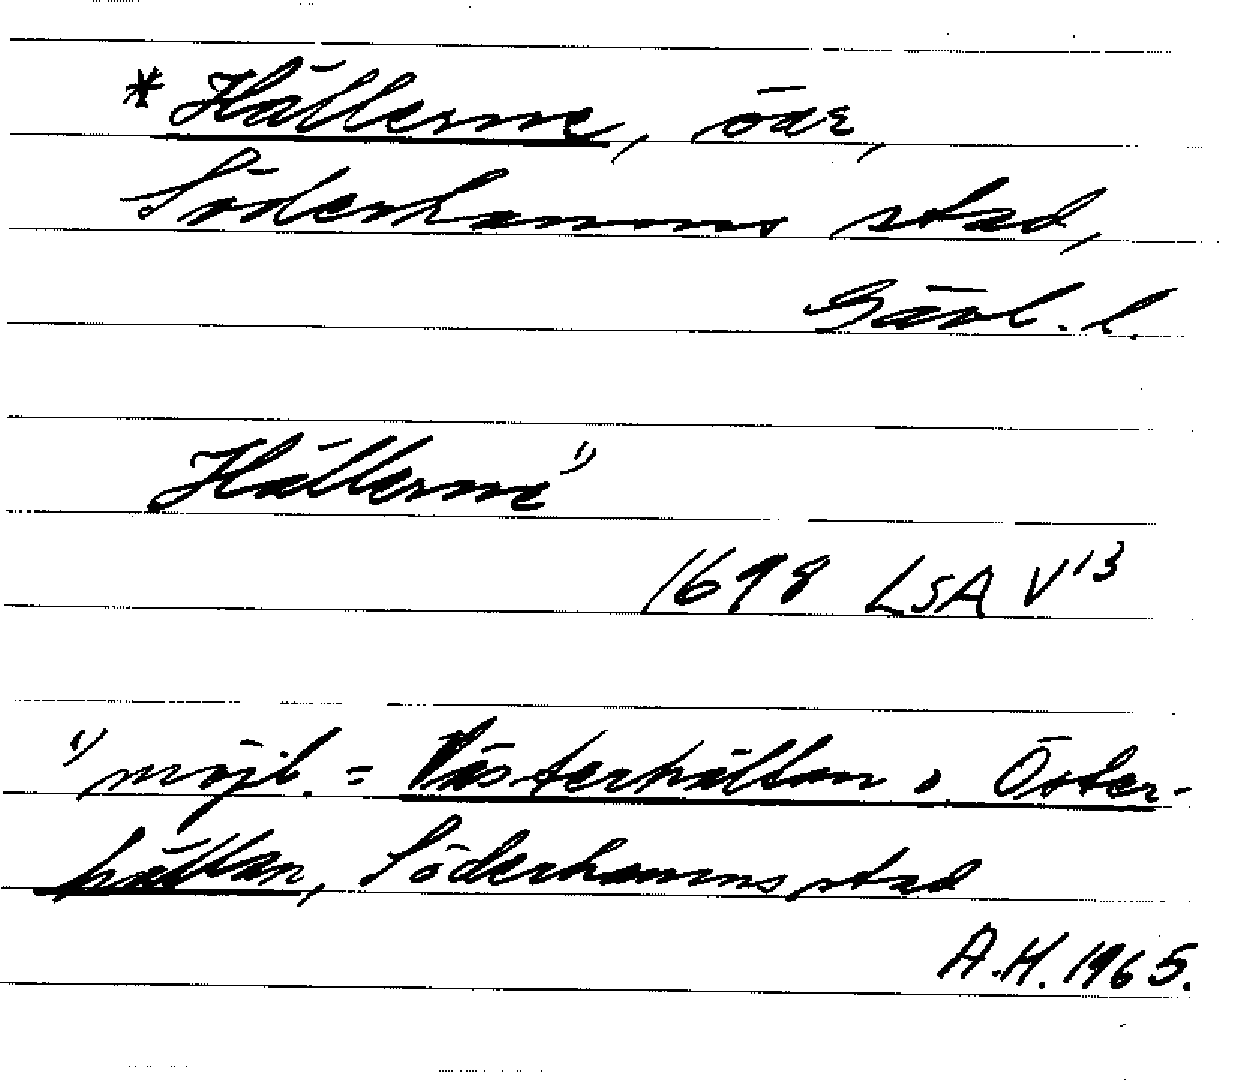 *Hällerne, öar,
Söderhamns stad,
Gävl. l.
Hällerne 1)
1698 LSA V 13
1) möjl. = Västerhällan o. Öster-
hällan, Söderhamns stad
A.H. 1965.